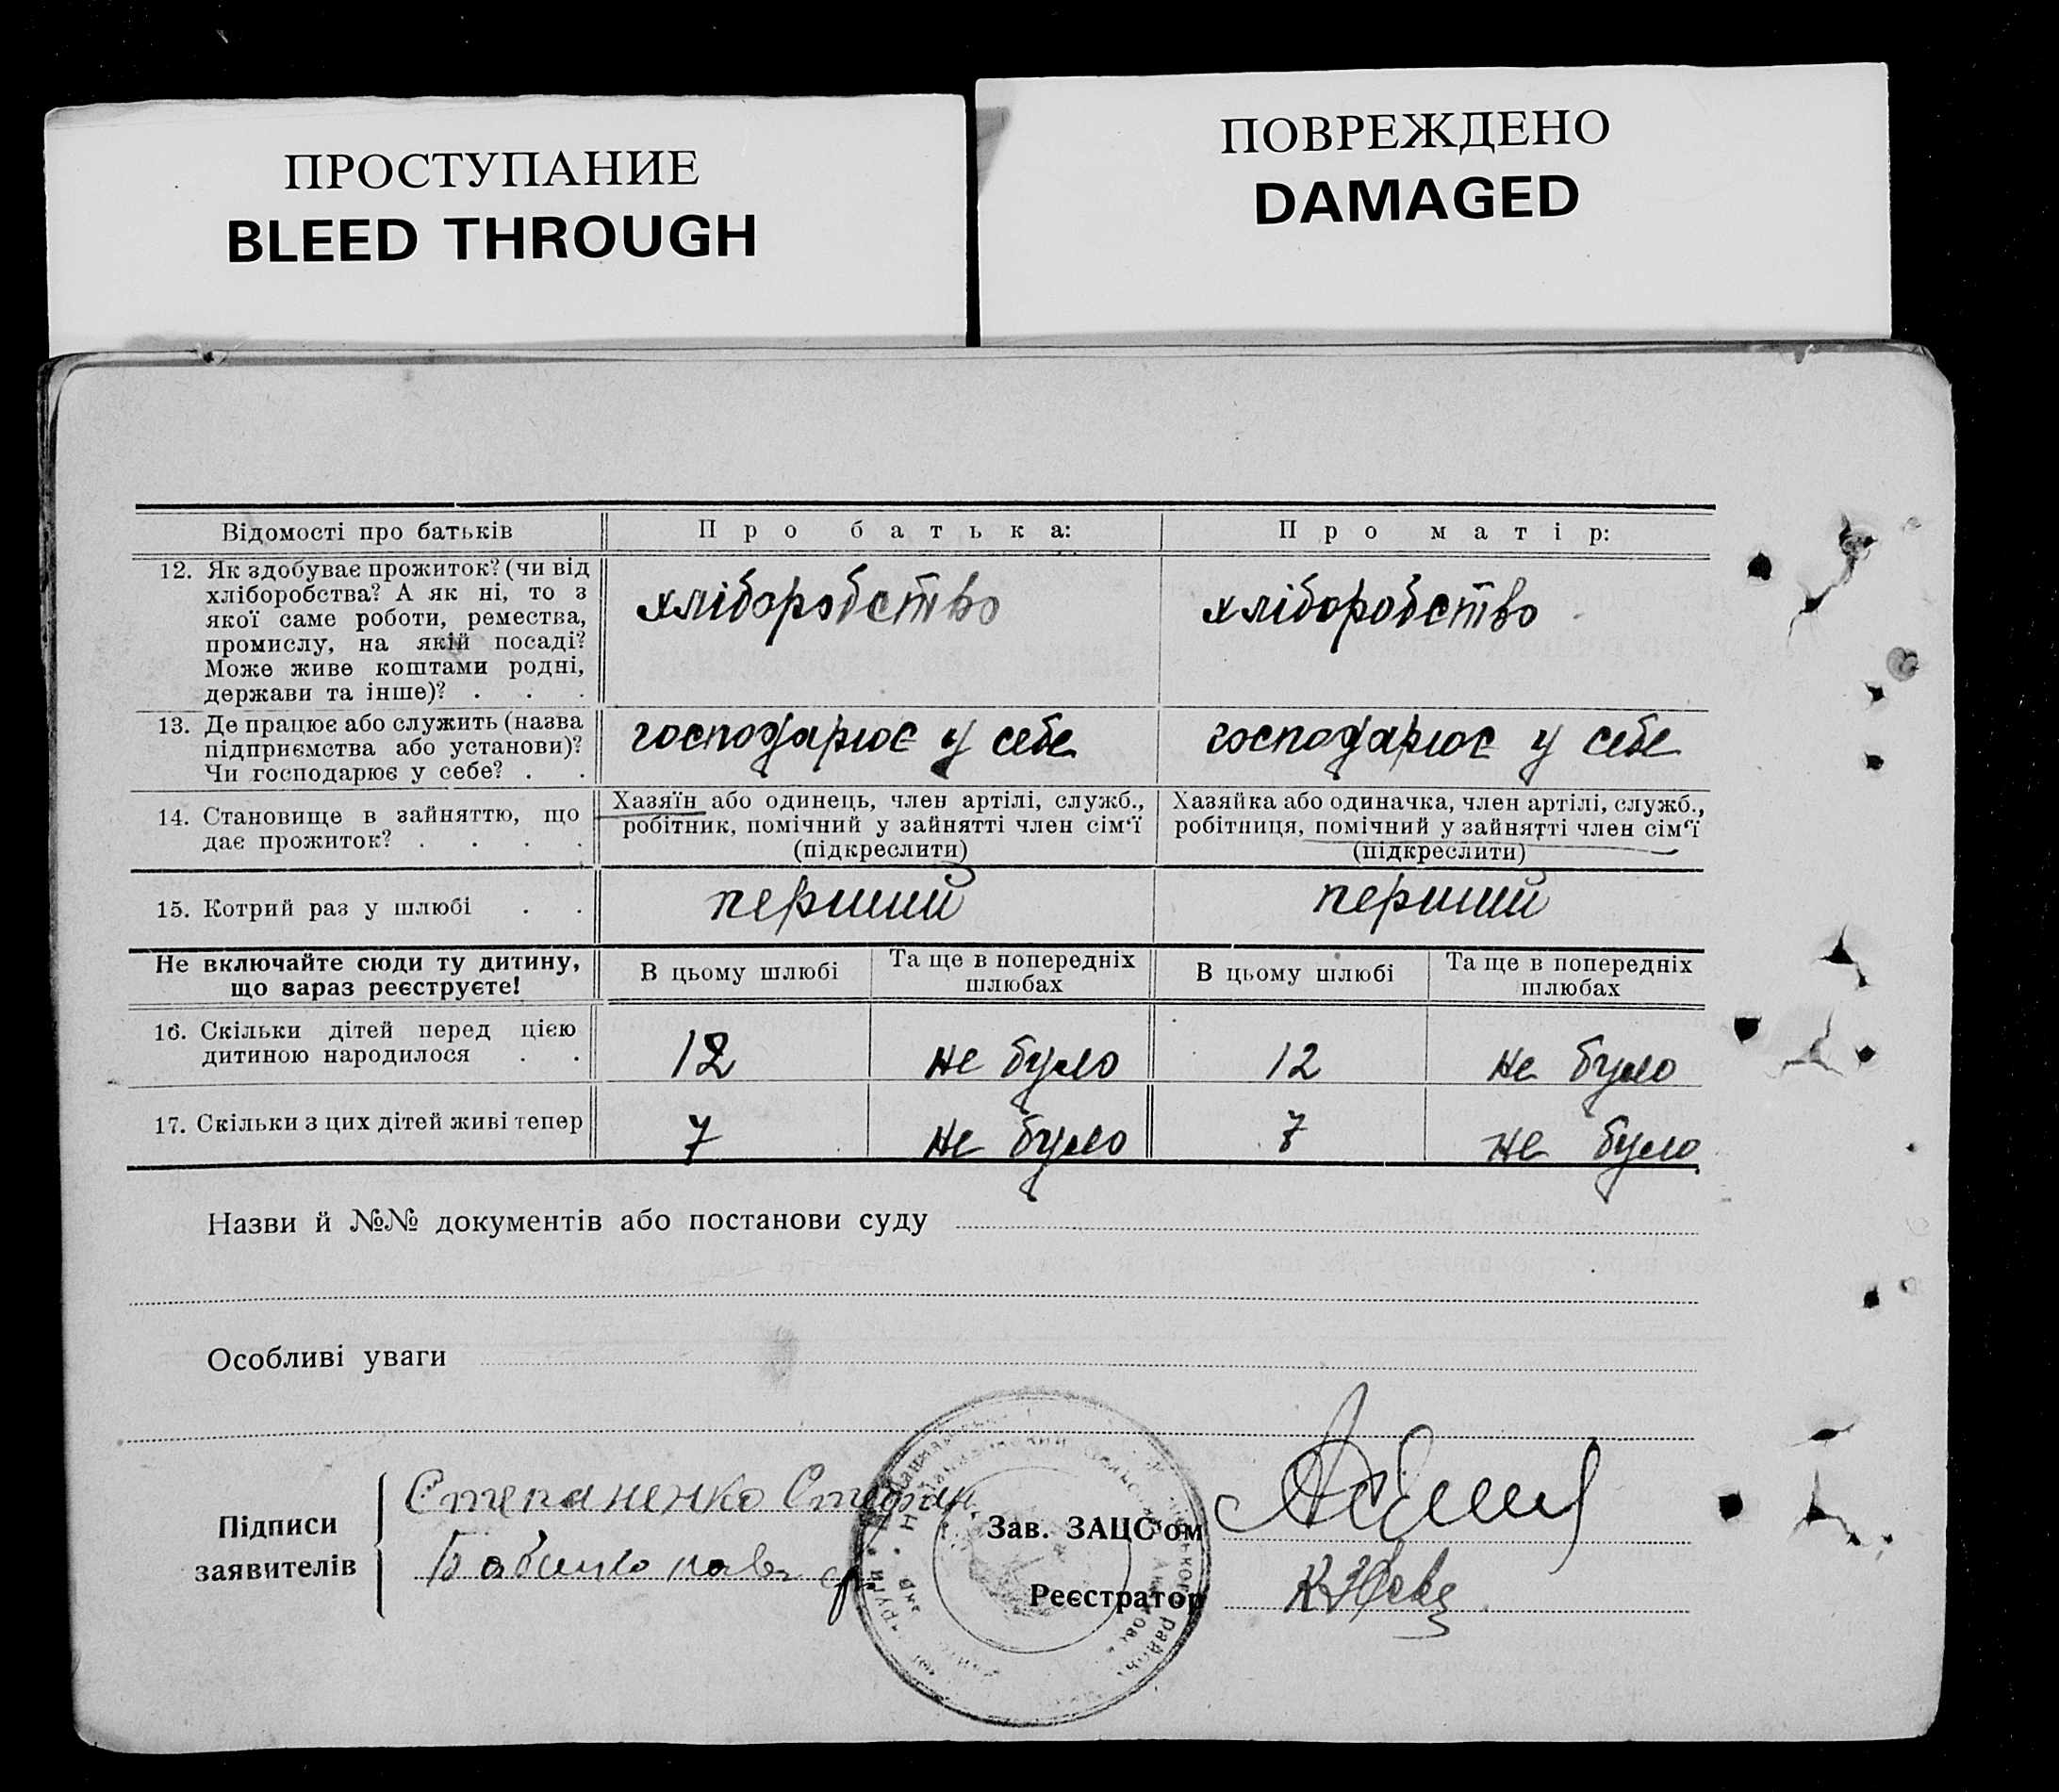 ПРОСТУПАНИЕ
BLEED THROUGH
ПОВРЕЖДЕНО
DAMAGED
Відомості про батьків
Про батька:
Про матір:
12. Як здобуває прожиток? (чи від
хліборобства? А як ні, то з
якої саме роботи, ремества,
промислу, на якій посаді?
Може живе коштами родні,
держави та інше)? . . .
хліборобство
хліборобство
13. Де працює або служить (назва
підприємства або установи)?
Чи господарює у себе? . .
господарює у себе
господарює у себе
14. Становище в зайняттю, що
дає прожиток? . . . .
Хазяїн або одинець, член артілі, служб.,
робітник, помічний у зайнятті член сім‘ї
(підкреслити)
Хазяйка або одиначка, член артілі, служб.,
робітниця, помічний у зайнятті член сім‘ї
(підкреслити)
15. Котрий раз у шлюбі . .
перший
перший
Не включайте сюди ту дитину,
що зараз реєструєте!
В цьому шлюбі
Та ще в попередніх
шлюбах
В цьому шлюбі
Та ще в попередніх
шлюбах
16. Скільки дітей перед цією
дитиною народилося . .
12
не було
12
не було
17. Скільки з цих дітей живі тепер
7
не було
7
не було
Назви й №№ документів або постанови суду
Особливі уваги
Підписи
заявителів
Степаненко Стефан
Зав. ЗАЦС'ом
Реєстратор